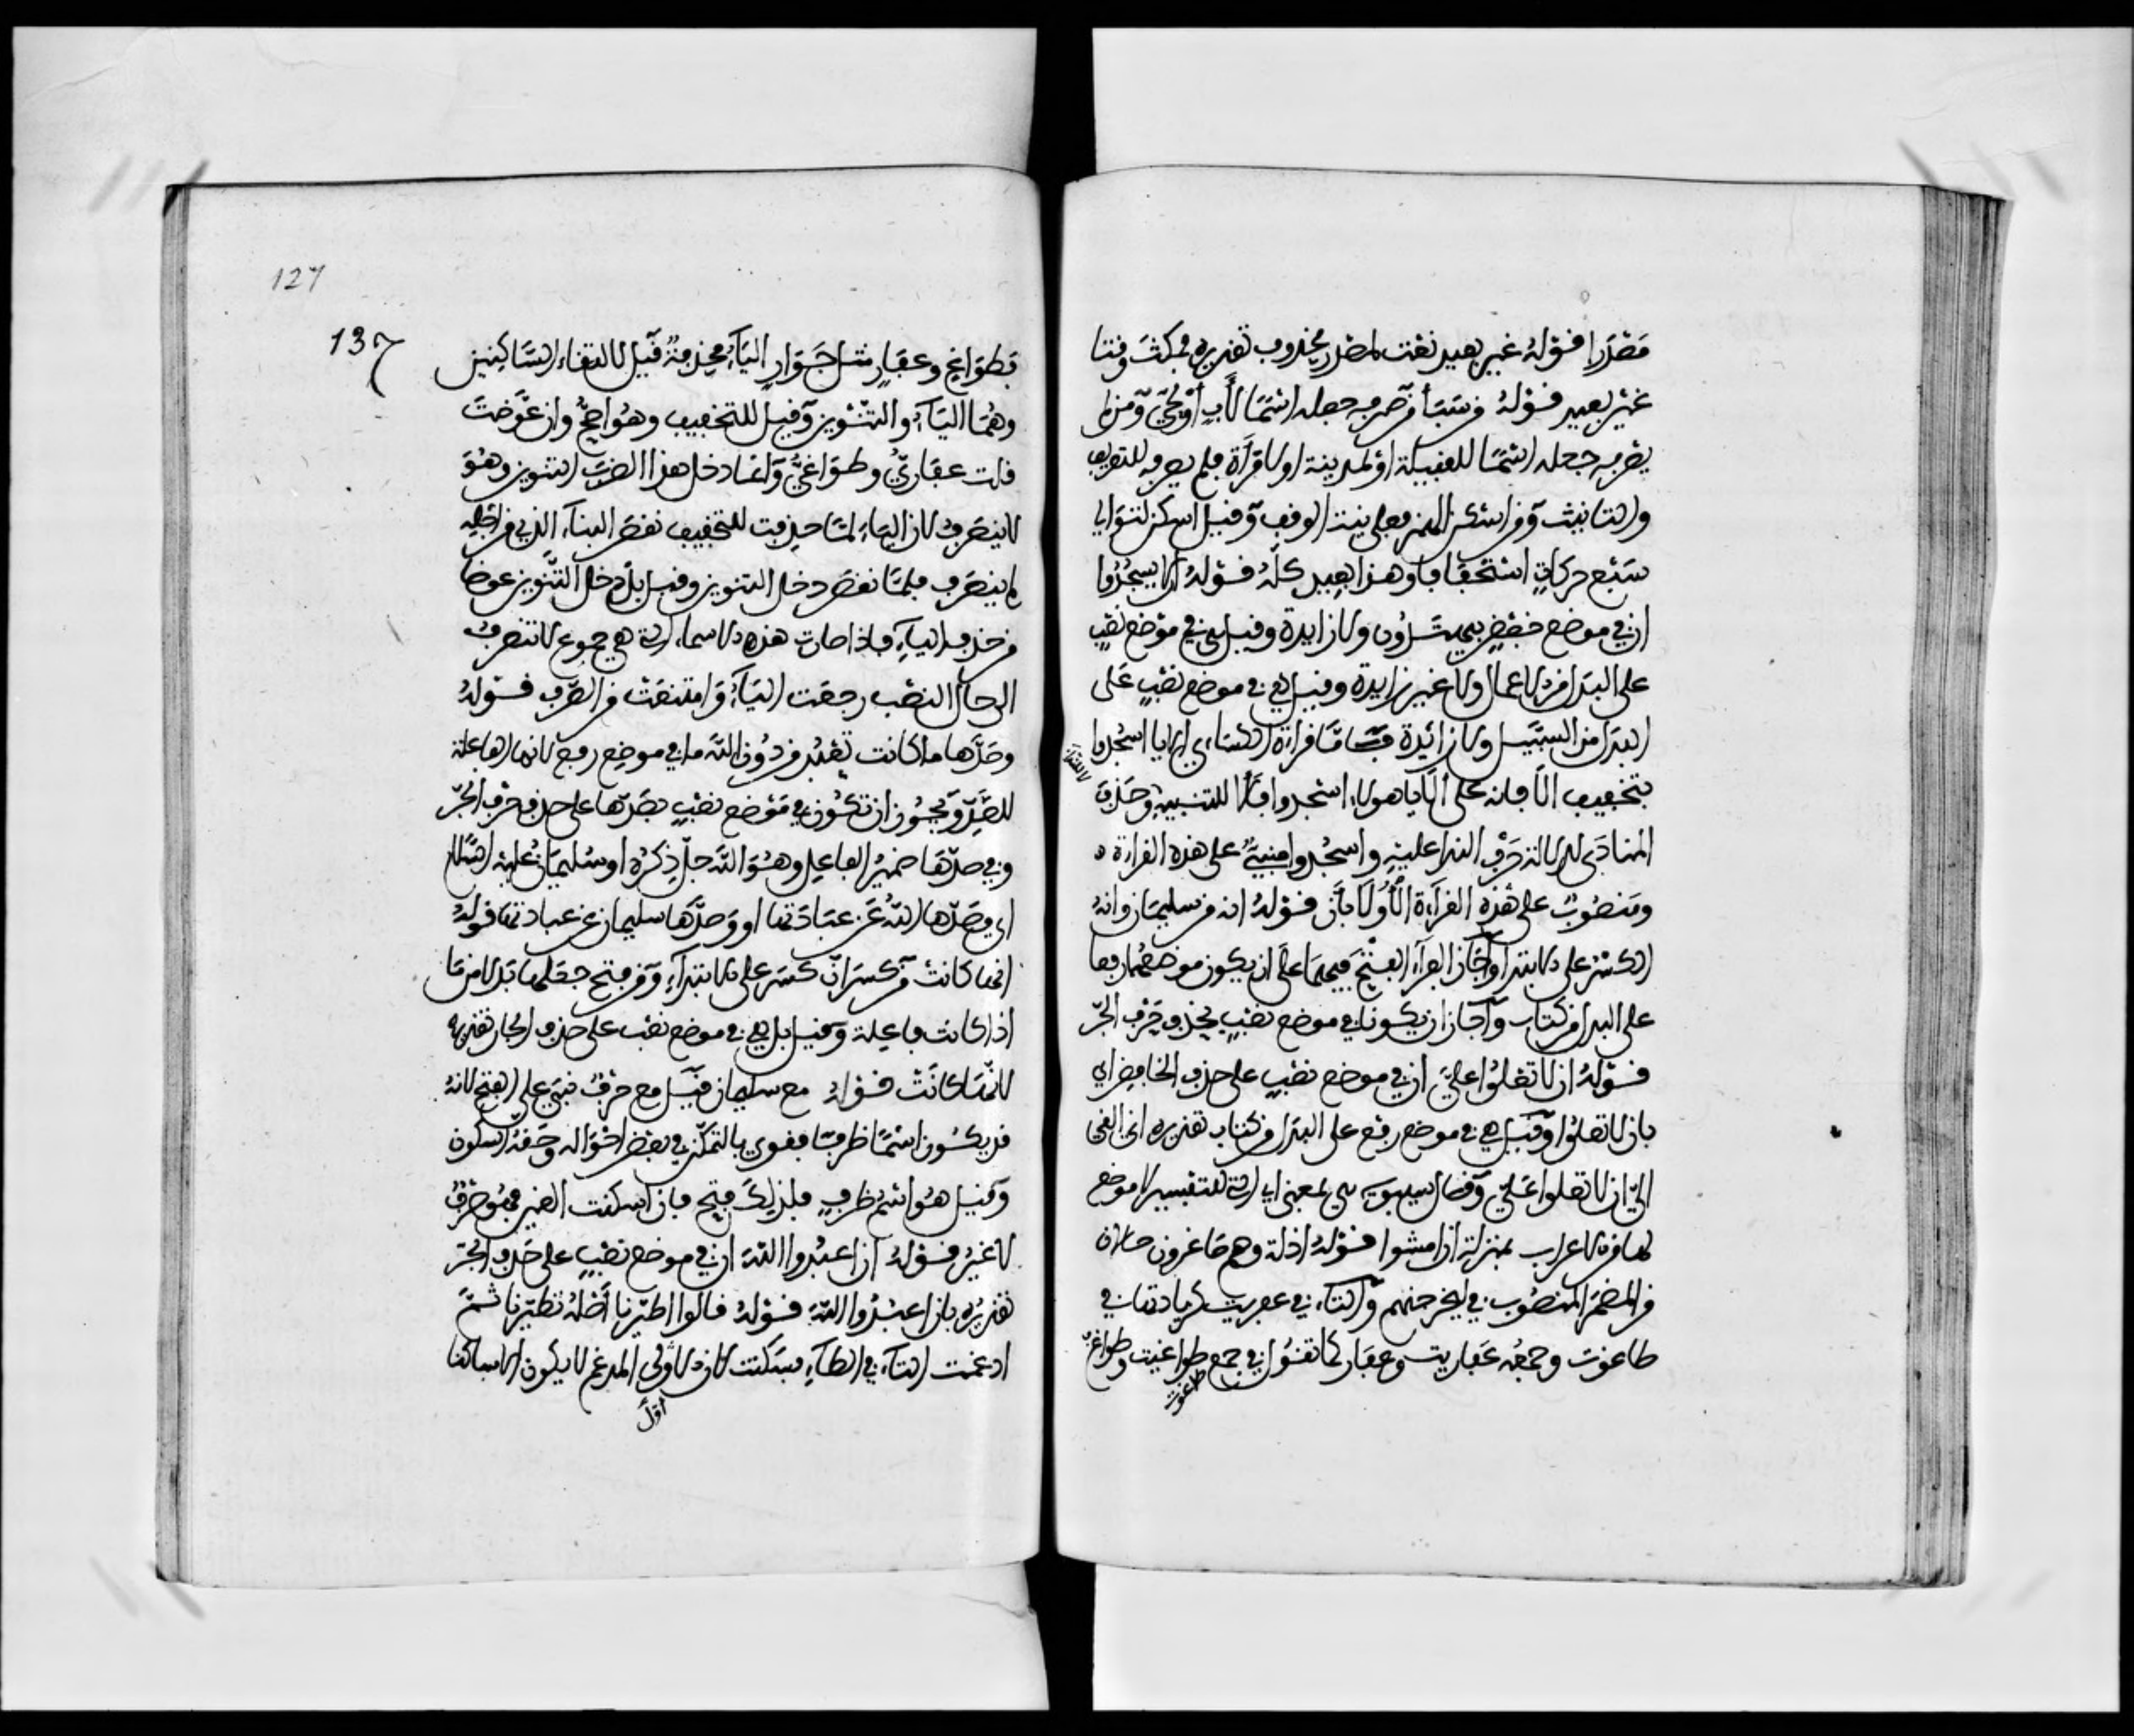 مصدرا قوله غير بعيد نعت لمصدر محذوف تقديره فمكث وقتا
غير بعيد قوله من سبأ من صرفه جعله اسما لأب أو لحي ومن لم
يصرفه جعله اسما للقبيلة أو لمدينة أو لامرأة فلم يصرفه للتعريف
والتانيث ومن اسكن الهمز فعلى نية الوقف وقيل اسكن لتوالي
سبع حركات استخفافا وهذا بعيد كله قوله الا يسجدوا
ان في موضع خفض ولا زايدة وقيل هي في موضع نصب
على البدل من الاعمال ولا غير زايدة وقيل هي في موضع نصب على
البدل من السبيل ولا زائدة فاما قراءة الكسائي الا يا اسجدوا
بتخفيف الا فانه على الا يا هولاء اسجدوا فالا للتنبيه وحذف
المنادى لدلالة حرف النداء عليه واسجدوا مبني على هذه القراءة
ومنصوب على هذه القراءة الأولى بأن قوله انه من سليمان وانه
الكسر على الابتداء وأجاز الفراء الفتح فيهما على ان يكون موضعهما رفعا
على البدل من كتاب وأجاز ان يكونا في موضع نصب بحذف حرف الجر
قوله ان لا تعلوا علي ان في موضع نصب على حذف الخافض اي
بان لا تعلوا وقيل هي في موضع رفع على البدل من كتاب تقديره اني القي
الي ان لا تعلوا علي وقال سيبويه هي بمعنى اي التي للتفسير لا موضع
لها من الاعراب بمنزلة ان امشوا قوله اذلة وهم صاغرون حالان
من المضمر المنصوب في لنخرجنهم والتاء في عفريت زيادتها في
طاغوت وجمعه عفاريت وعفار كما تقول في جمع طواغيت وطواغ
طاغوت
فطواغ وعفار مثل جوار الياء محذوفة قيل لالتقاء الساكنين
وهما الياء والتنوين وقيل للتخفيف وهو اصح وان عوضت
قلت عفاري وطواغي وانما دخل هذا الضرب التنوين وهو
لا ينصرف لان الياء لما حذفت للتخفيف نقص البناء الذي من اجله
لم ينصرف فلما نقص دخل التنوين وقيل بل دخل التنوين عوضا
من حذف الياء فاذا صارت هذه الاسماء التي هي جموع لا تنصرف
الى حال النصب رجعت الياء وامتنعت من الصرف قوله
وصدها ما كانت تعبد من دون الله ما في موضع رفع لانها الفاعلة
للصد ويجوز ان تكون في موضع نصب بصدها على حذف حرف الجر
وفي صدها ضمير الفاعل وهو الله جل ذكره او سليمان عليه السلام
اي وصدها الله عن عبادتها او وصدها سليمان عن عبادتها قوله
انها كانت من كسر ان كسر على الابتداء ومن فتح جعلها بدلا من ما
اذا كانت فاعلة وقيل بل هي في موضع نصب على حذف الجار تقديره
لانها كانت قوله مع سليمان قيل مع حرف بني على الفتح لانه
قد يكون اسما ظرفا فقوي بالتمكن في بعض احواله وحقه السكون
وقيل هو اسم ظرف فلذلك فتح فان اسكنت العين فهو حرف
لا غير قوله ان اعبدوا الله ان في موضع نصب على حذف الجر
تقديره بان اعبدوا الله قوله قالوا اطيرنا أصله تطيرنا ثم
ادغمت التاء في الطاء فسكنت لان الاولى المدغم لا يكون الا ساكنا
اول
127
137